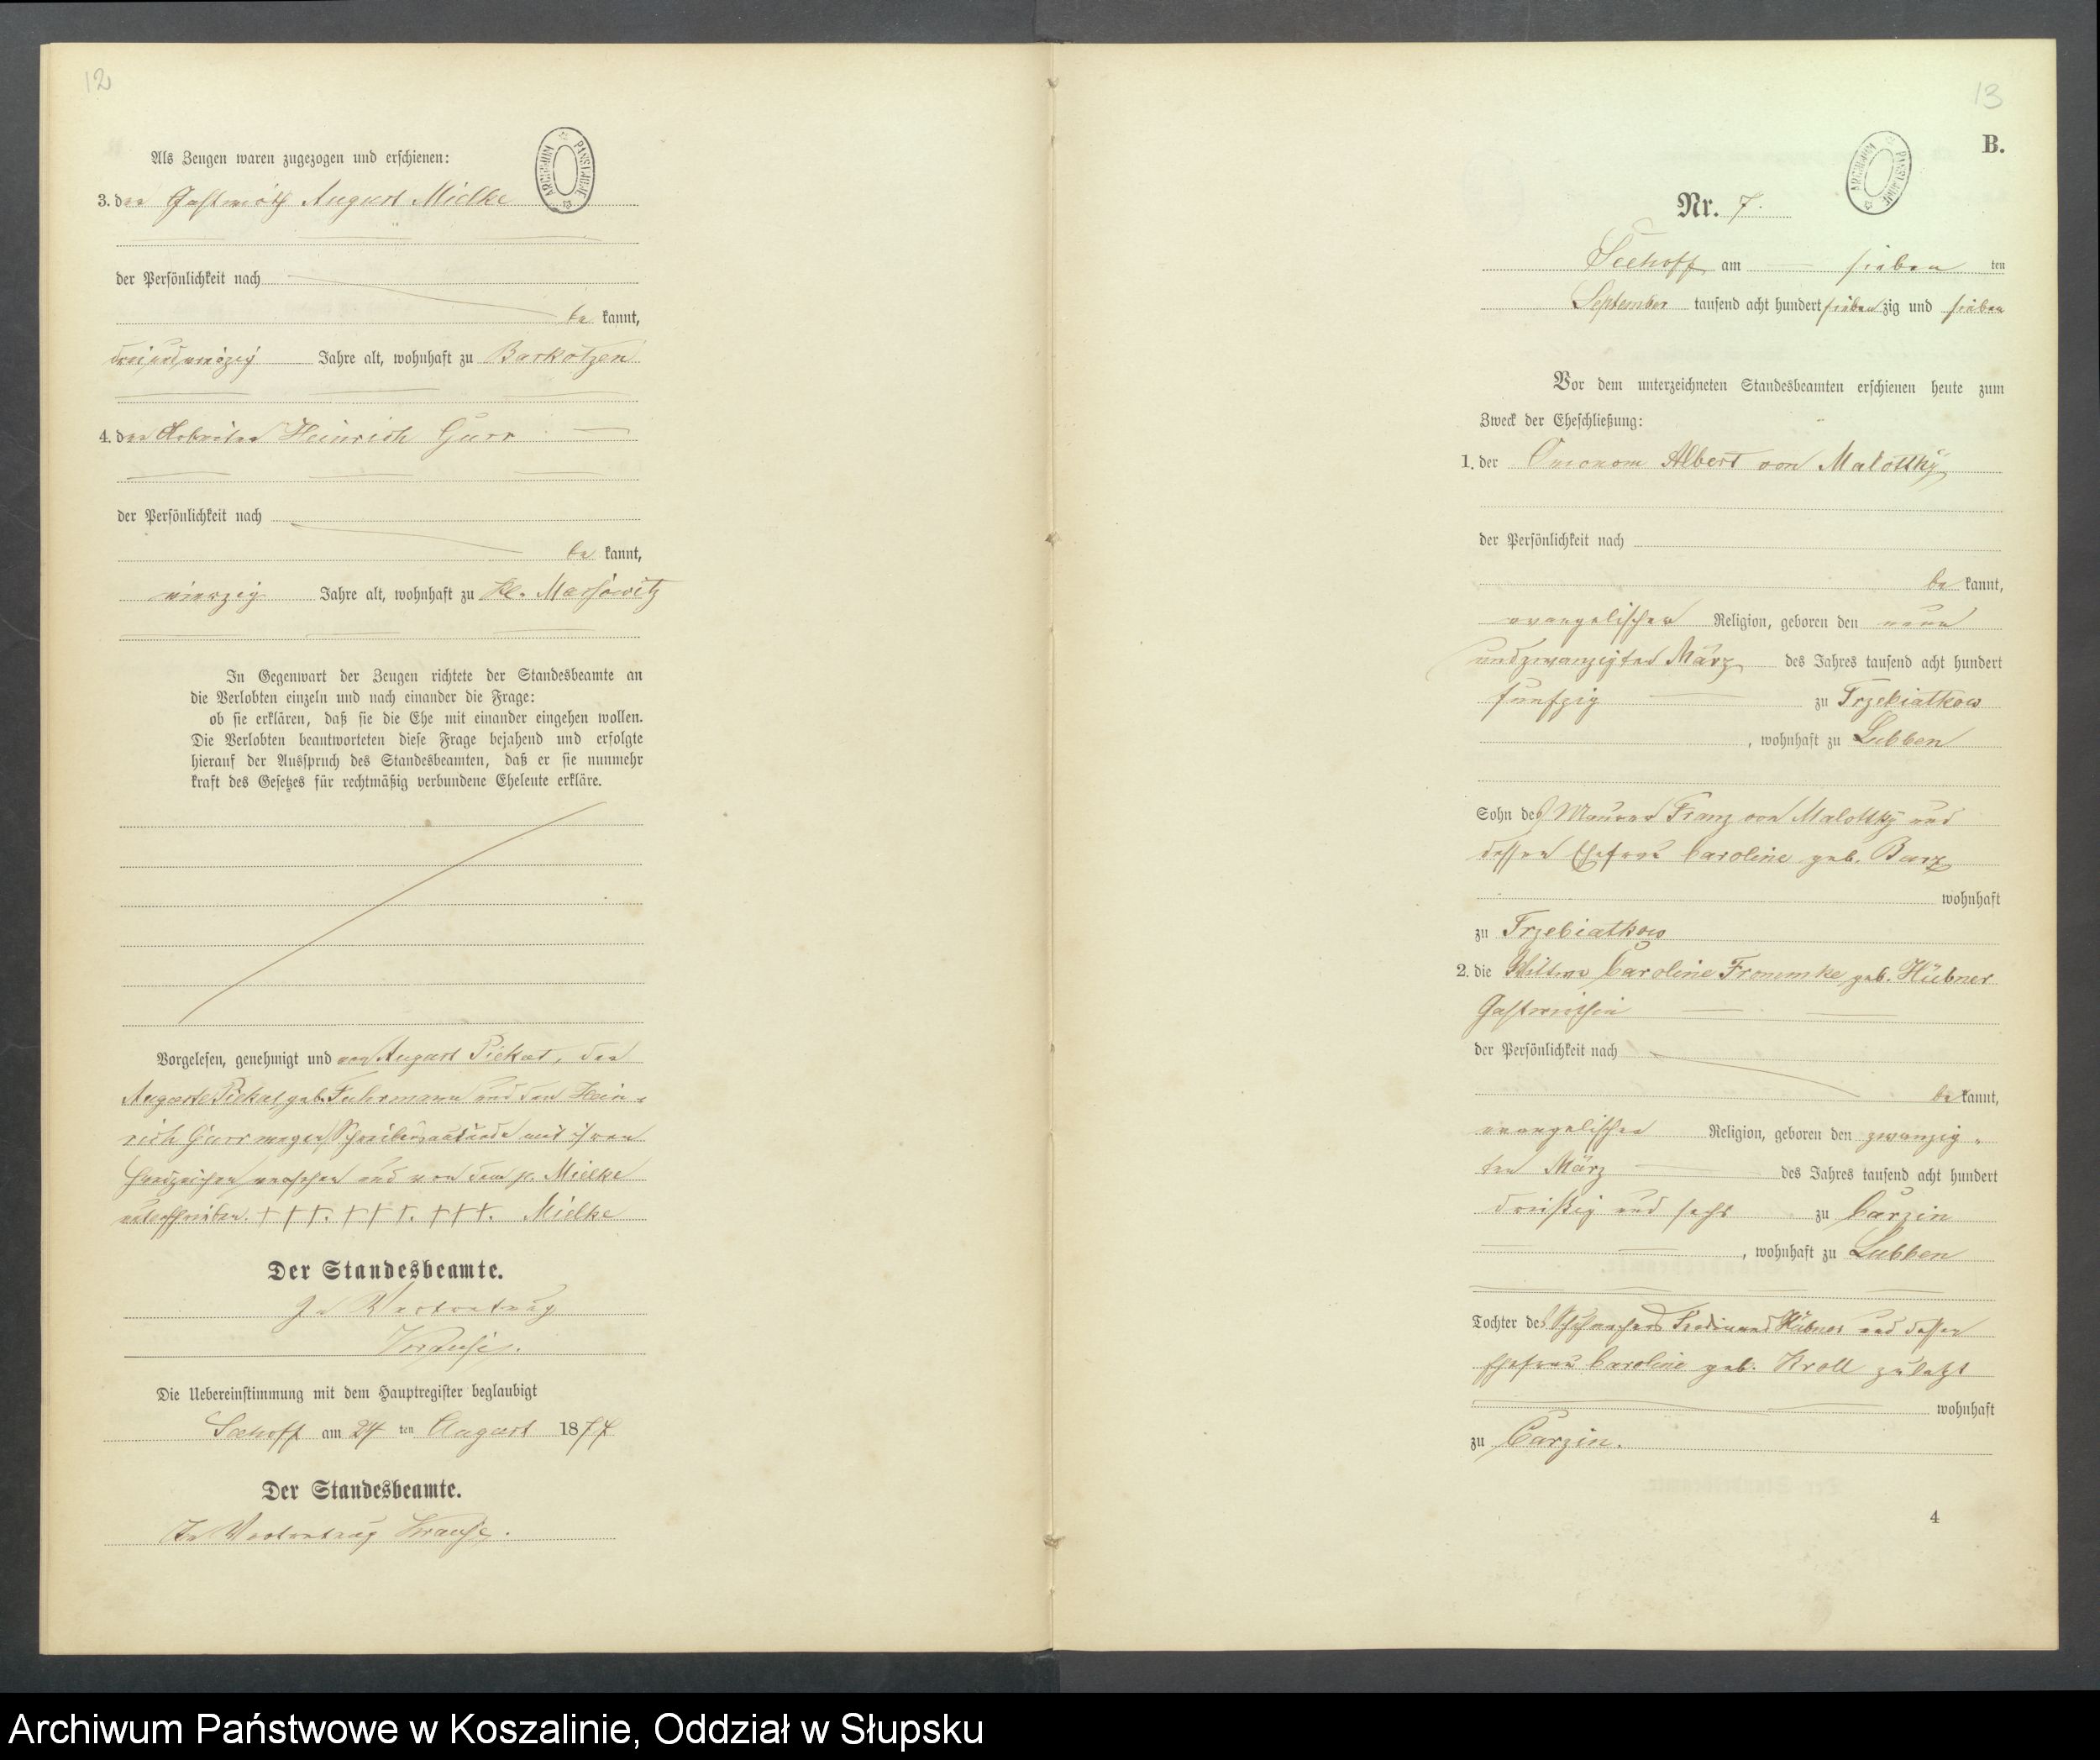 12
Als Zeugen waren zugezogen und erschienen:
3. der Gastwirth August Mielke
der Persönlichkeit nach
be kannt,
dreiundvierzig Jahre alt, wohnhaft zu Barkotzen
4. der Arbeiter Heinrich Gurr
der Persönlichkeit nach
be kannt,
vierzig Jahre alt, wohnhaft zu Kl. Massowitz
In Gegenwart der Zeugen richtete der Standesbeamte an
die Verlobten einzeln und nach einander die Frage:
ob sie erklären, daß sie die Ehe mit einander eingehen wollen.
Die Verlobten beantworteten diese Frage bejahend und erfolgte
hierauf der Ausspruch des Standesbeamten, daß er sie nunmehr
kraft des Gesetzes für rechtmäßig verbundene Eheleute erkläre.
Vorgelesen, genehmigt und von August Piekat, der
Auguste Piekat geb. Fuhrmann und dem Hein-
rich Gurr wegen Schreibensunkunde mit ihren
Handzeichen versehen und von dem p. Mielke
unterschrieben. +++. +++. +++. Mielke
Der Standesbeamte.
In Vertretung
Krause.
Die Uebereinstimmung mit dem Hauptregister beglaubigt
Seehoff am 24 ten August 1877
Der Standesbeamte.
In Vertretung Krause.
13
B.
Nr. 7.
Seehoff am sieben ten
September tausend acht hundert sieben zig und sieben
Vor dem unterzeichneten Standesbeamten erschienen heute zum
Zweck der Eheschließung:
1. der Oeconom Albert von Malottky
der Persönlichkeit nach
be kannt,
evangelischer Religion, geboren den neun
undzwanzigsten März des Jahres tausend acht hundert
fünfzig zu Trzebiatkow
, wohnhaft zu Lubben
Sohn des Maurer Franz von Malottky und
dessen Ehefrau Caroline geb. Barz
wohnhaft
zu Trzebiatkow
2. die Wittwe Caroline Fromke geb. Hübner
Gastwirthin
der Persönlichkeit nach
be kannt,
evangelischer Religion, geboren den zwanzig-
sten März des Jahres tausend acht hundert
dreißig und sechs zu Carzin
, wohnhaft zu Lubben
Tochter des Schuhmachers Ferdinand Hübner und dessen
Ehefrau Caroline geb. Kroll zuletzt
wohnhaft
zu Carzin.
4
Archiwum Państwowe w Koszalinie, Oddział w Słupsku